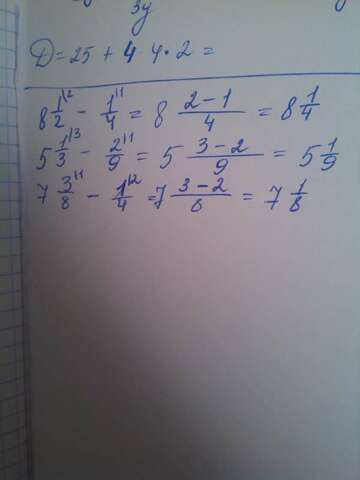 3y
D = 25 + 4 · 4 · 2 =
8 1/2 \2 − 1/4 \1 = 8 (2 − 1)/4 = 8 1/4
5 1/3 \3 − 2/9 \1 = 5 (3 − 2)/9 = 5 1/9
7 3/8 \1 − 1/4 \2 = 7 (3 − 2)/8 = 7 1/8